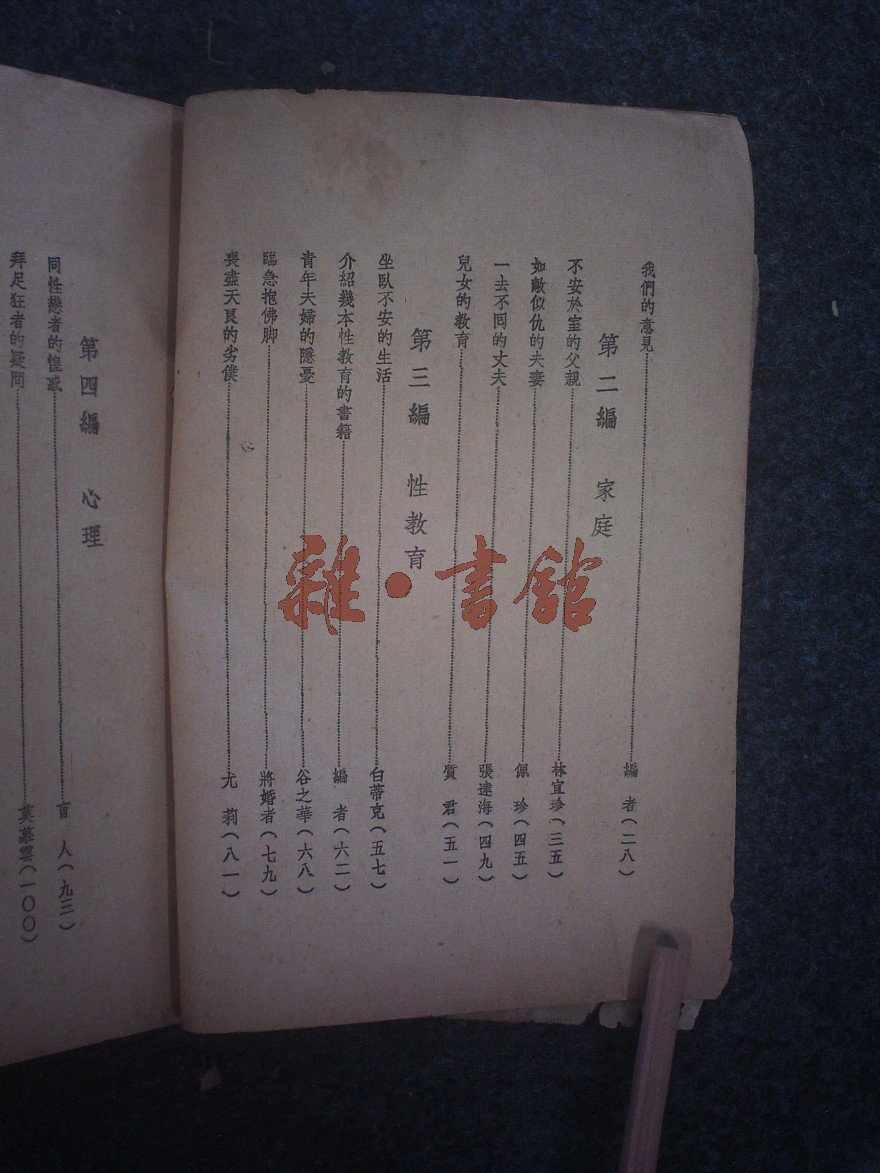 我們的意見……編　者(二八)
第二編　家庭
不安於室的父親……林宜珍(三五)
如敵似仇的夫妻……佩　珍(四五)
一去不回的丈夫……張達海(四九)
兒女的教育……質　君(五一)
第三編　性教育
坐臥不安的生活……白蒂克(五七)
介紹幾本性教育的書籍……編　者(六二)
青年夫婦的隱憂……谷之華(六八)
臨急抱佛脚……將婚者(七九)
喪盡天良的劣僕……尤　莉(八一)
第四編　心理
同性戀者的惶惑……盲　人(九三)
拜足狂者的疑問……莫慕雲(一〇〇)
雜·書館